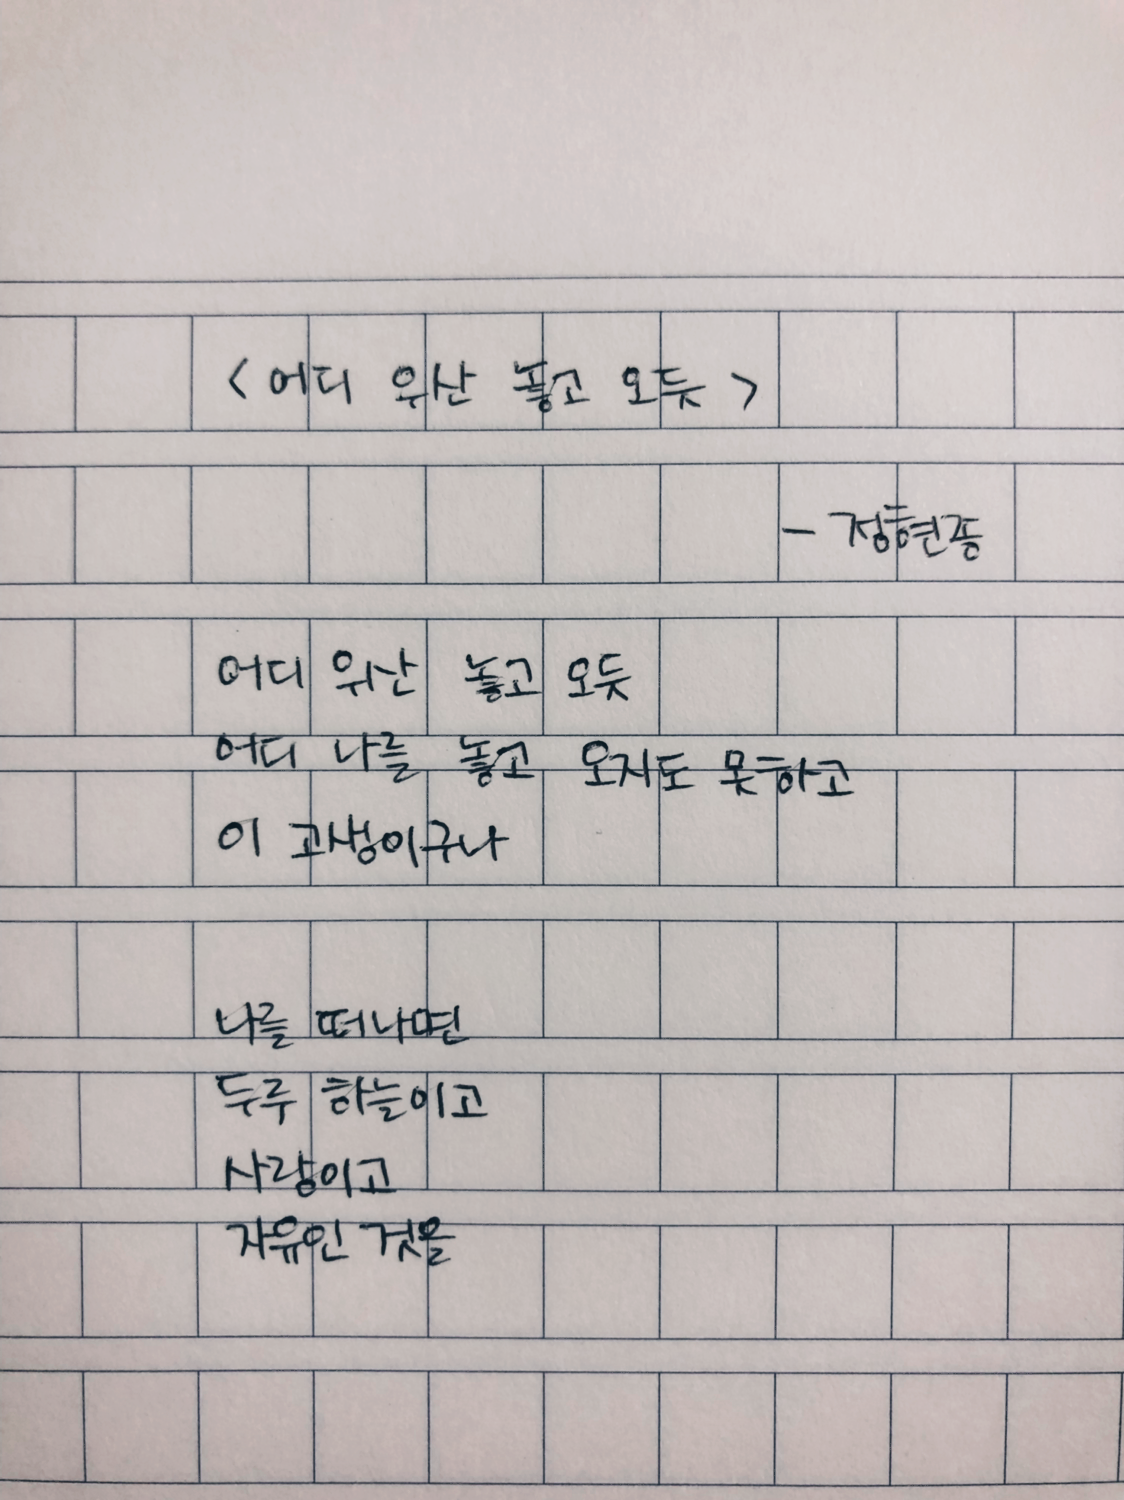 < 어디 우산 놓고 오듯 >
- 정현종
어디 우산 놓고 오듯
어디 나를 놓고 오지도 못하고
이 고생이구나
나를 떠나면
두루 하늘이고
사랑이고
자유인 것을